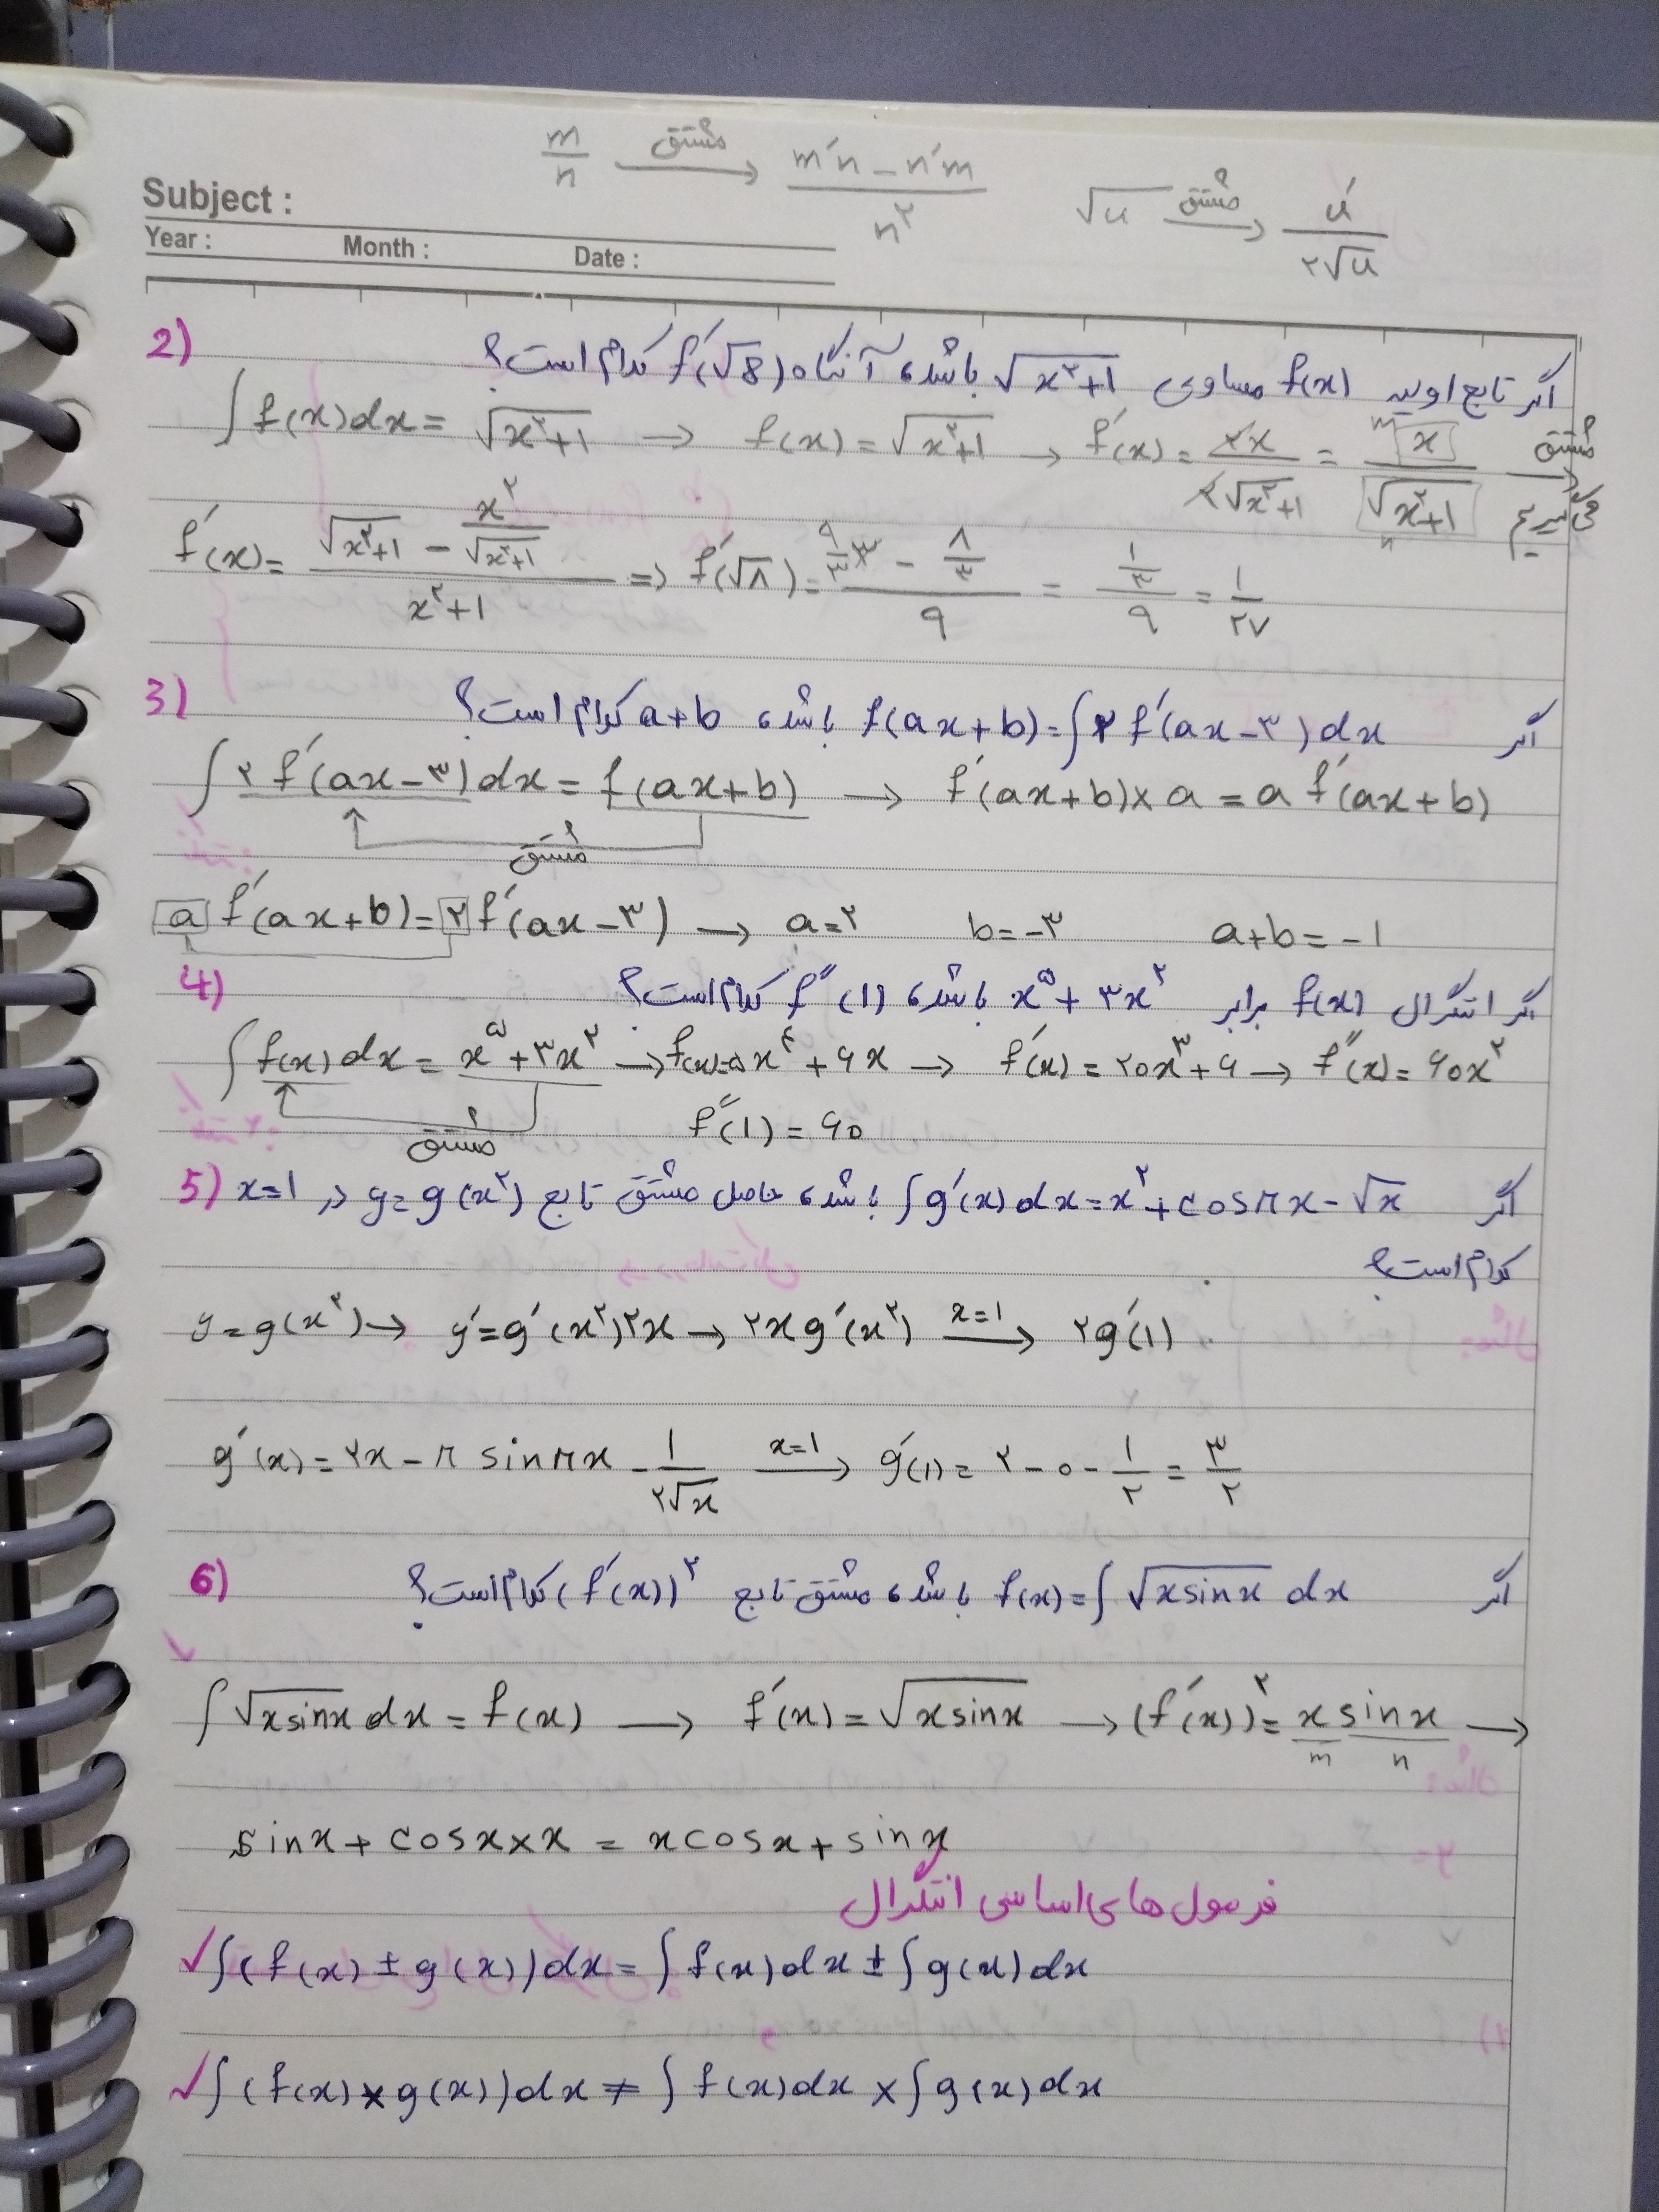 m/n —مشتق→ (m′n − n′m)/n²
√u —مشتق→ u′/۲√u
Subject :
Year : Month : Date :
2) اگر تابع اولیه f(x) مساوی √(x²+1) باشد، آنگاه f′(√8) کدام است؟
∫f(x)dx = √(x²+1) → f(x) = √(x²+1) → f′(x) = ۲x/۲√(x²+1) = x/√(x²+1) m n مشتق می‌گیریم →
f′(x) = (√(x²+1) − x²/√(x²+1))/(x²+1) ⇒ f′(√۸) = (۹/۳ ۳ − ۸/۳)/۹ = (۱/۳)/۹ = ۱/۲۷
3) اگر f(ax+b) = ∫۲f′(ax−۳)dx باشد، a+b کدام است؟
∫۲f′(ax−۳)dx = f(ax+b) → f′(ax+b)×a = a f′(ax+b)
مشتق
a f′(ax+b) = ۲f′(ax−۳) → a=۲ b=−۳ a+b=−۱
4) اگر انتگرال f(x) برابر x⁵+۳x² باشد، f″(1) کدام است؟
∫f(x)dx = x⁵+۳x² → f(x)=۵x⁴+۶x → f′(x)=۲۰x³+۶ → f″(x)=۶۰x²
مشتق f″(1)=۶۰
5) اگر ∫g′(x)dx = x²+cosπx−√x باشد، حاصل مشتق تابع y=g(x²) در x=1
کدام است؟
y=g(x²) → y′=g′(x²)۲x → ۲xg′(x²) —x=1→ ۲g′(1)
g′(x)=۲x−π sinπx − 1/۲√x —x=1→ g′(1)=۲−۰−۱/۲=۳/۲
6) اگر f(x)=∫√(x sinx) dx باشد، مشتق تابع (f′(x))² کدام است؟
∫√(x sinx) dx = f(x) → f′(x)=√(x sinx) → (f′(x))²= x sinx → m n
sinx + cosx×x = xcosx + sinx
فرمول های اساسی انتگرال
✓∫(f(x) ± g(x))dx = ∫f(x)dx ± ∫g(x)dx
✓∫(f(x)×g(x))dx ≠ ∫f(x)dx × ∫g(x)dx